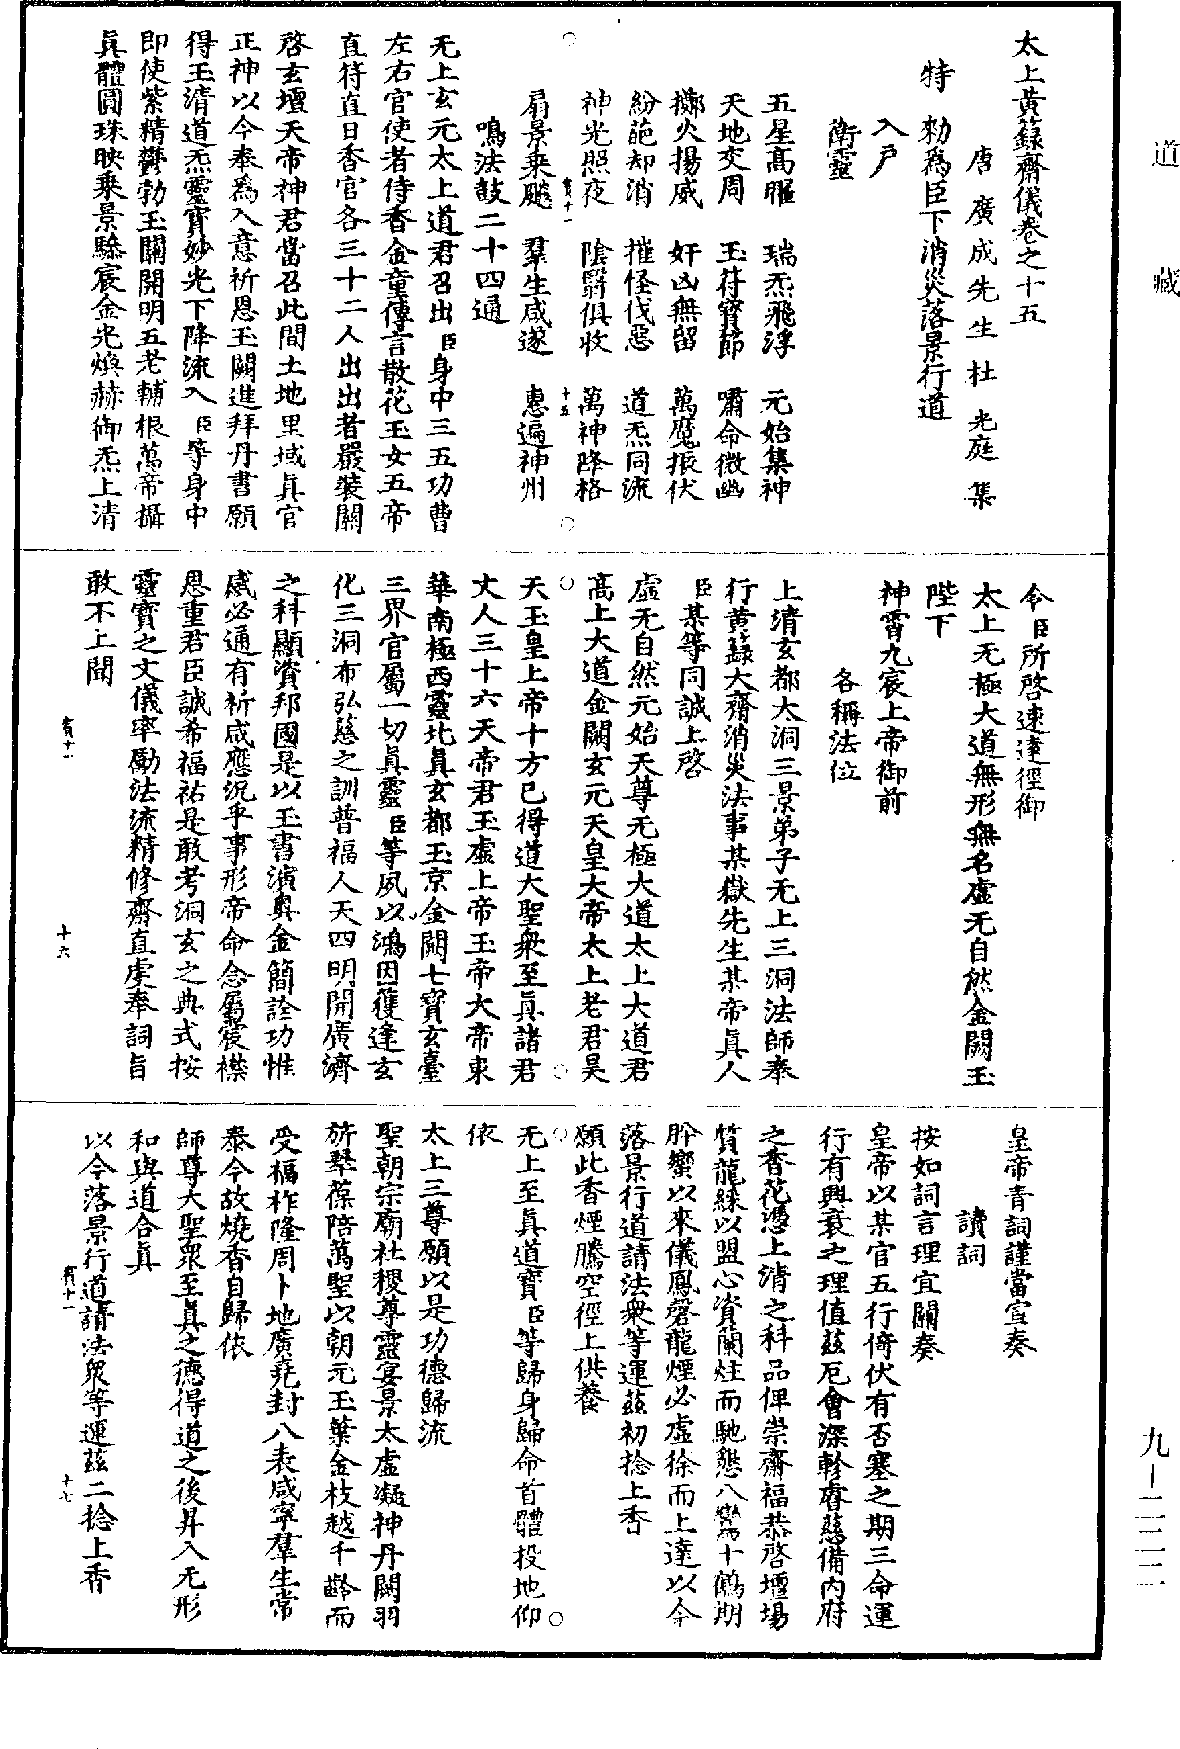 道藏
九—二二二
太上黃籙齋儀卷之十五
唐廣成先生杜光庭集
特勑為臣下消災落景行道
入戶
衛靈
五星高曜　瑞炁飛浮　元始集神
天地交周　玉符寶節　嘯命微幽
擲火揚威　奸凶無留　萬魔振伏
紛葩却消　摧怪伐惡　道炁同流
神光照夜　陰翳俱收　萬神降格
賓十一　十五
扇景乘飈　羣生咸遂　惠遍神州
鳴法鼓二十四通
无上玄元太上道君召出臣身中三五功曹
左右官使者侍香金童傳言散花玉女五帝
直符直日香官各三十二人出出者嚴裝關
啓玄壇天帝神君當召此間土地里域真官
正神以今奉為入意祈恩玉闕進拜丹書願
得玉清道炁靈寶妙光下降流入臣等身中
即使紫精鬱勃玉關開明五老輔根萬帝攝
真體圓珠映乘景驂宸金光煥赫御炁上清
令臣所啓速達徑御
太上无極大道無形無名虛无自然金闕玉
陛下
神霄九宸上帝御前
各稱法位
上清玄都大洞三景弟子无上三洞法師奉
行黃籙大齋消災法事某嶽先生某帝真人
臣某等同誠上啓
虛无自然元始天尊无極大道太上大道君
高上大道金闕玄元天皇大帝太上老君昊
天玉皇上帝十方已得道大聖衆至真諸君
丈人三十六天帝君玉虛上帝玉帝大帝東
華南極西靈北真玄都玉京金闕七寶玄臺
三界官屬一切真靈臣等夙以鴻因獲逢玄
化三洞布弘慈之訓普福人天四明開廣濟
之科顯資邦國是以玉書演奧金簡詮功惟
感必通有祈咸應況乎事形帝命念屬宸襟
恩重君臣誠希福祐是敢考洞玄之典式按
靈寶之文儀率勵法流精修齋直虔奉詞旨
敢不上聞
賓十一　十六
皇帝青詞謹當宣奏
讀詞
按如詞言理宜關奏
皇帝以某官五行倚伏有否塞之期三命運
行有興衰之理值茲厄會深軫睿慈備內府
之香花憑上清之科品俾崇齋福恭啓壇場
質龍綵以盟心資蘭炷而馳懇八鸞十鶴期
肸蠁以來儀鳳磬龍煙必虛徐而上達以今
落景行道請法衆等運茲初捻上香
願此香煙騰空徑上供養
无上至真道寶臣等歸身歸命首體投地仰
依
太上三尊願以是功德歸流
聖朝宗廟社稷尊靈宴景太虛凝神丹闕羽
旂翠葆陪萬聖以朝元玉葉金枝越千齡而
受福祚隆周卜地廣堯封八表咸寧羣生常
泰今故燒香自歸依
師尊大聖眾至真之德得道之後昇入无形
和與道合真
以今落景行道請法眾等運茲二捻上香
賓十一　十七